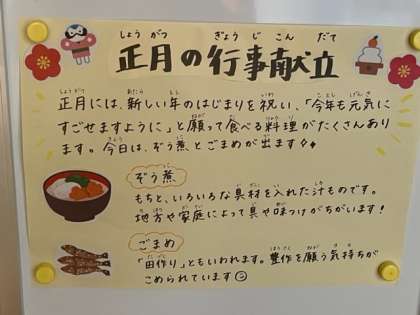 正月の行事献立
正月には、新しい年のはじまりを祝い、「今年も元気に
すごせますように」と願って食べる料理がたくさんあり
ます。今日は、ぞう煮とごまめが出ます
ぞう煮
もちと、いろいろな具材を入れた汁ものです。
地方や家庭によって具や味つけがちがいます!
ごまめ
「田作り」ともいわれます。豊作を願う気持ちが
こめられています